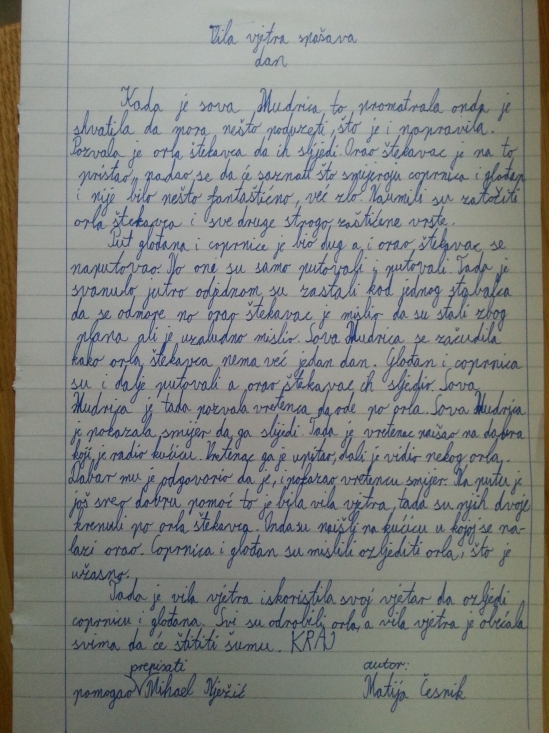 Vila vjetra spašava
dan
Kada je sova Mudrica to promatrala onda je
shvatila da mora nešto poduzeti, što je i napravila.
Pozvala je orla štekavca da ih slijedi. Orao štekavac je na to
pristao, nadao se da će saznati što smjeraju coprnica i glođan
i nije bilo nešto fantastično, već zlo. Naumili su zatočiti
orla štekavca i sve druge strogo zaštićene vrste.
Put glođana i coprnice je bio dug a i orao štekavac se
naputovao. No one su samo putovali i putovali. Tada je
svanulo jutro odjednom su zastali kod jednog stabalca
da se odmore no orao štekavac je mislio da su stali zbog
plana ali je uzaludno mislio. Sova Mudrica se začudila
kako orla štekavca nema već jedan dan. Glođan i coprnica
su i dalje putovali a orao štekavac ih slijedio. Sova
Mudrica je tada pozvala vretenca da ode po orla. Sova Mudrica
je pokazala smijer da ga slijedi. Tada je vretenac naišao na dabra
koji je radio kućicu. Vretenac ga je upitao, dali je vidio nekog orla.
Dabar mu je odgovorio da je, i pokazao vretencu smijer. Na putu je
još sreo dobru pomoć to je bila vila vjetra, tada su njih dvoje
krenuli po orla štekavca. Onda su naišli na kućicu u kojoj se na-
lazi orao. Coprnica i glođan su mislili ozljediti orla, što je
užasno.
Tada je vila vjetra iskoristila svoj vjetar da ozljedi
coprnicu i glođana. Svi su odrobili orla, a vila vjetra je obećala
svima da će štititi šumu. KRAJ
prepisati autor:
pomogao Mihael Nježić Matija Česnik